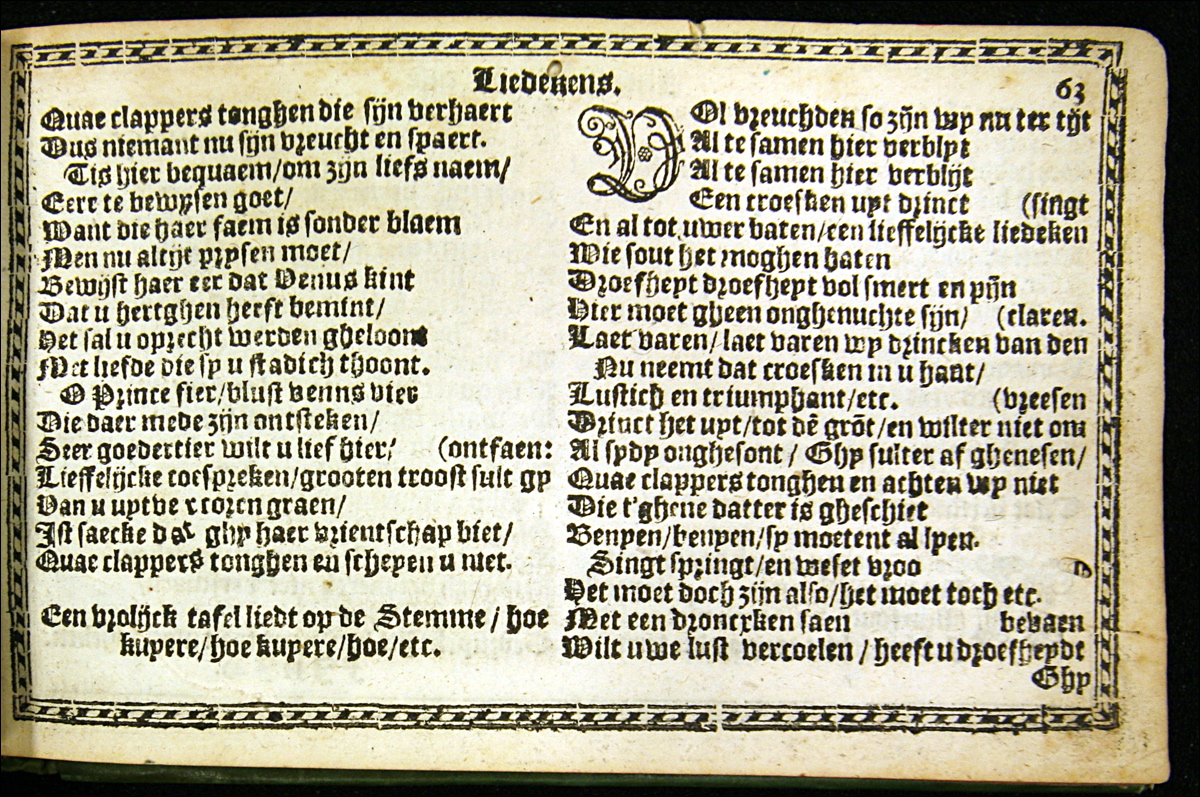 Liedekens.
63
Quae clappers tonghen die sijn verhaert
Dus niemant nu sijn vreucht en spaert.
Tis hier bequaem/om zijn liefs naem/
Eere te bewysen goet/
Want die haer faem is sonder blaem
Men nu altijt prysen moet/
Bewijst haer eer dat Venus kint
Dat u hertghen heeft bemint/
Het sal u oprecht werden gheloont
Met liefde die sy u stadich thoont.
O Prince fier/blust venns vier
Die daer mede zijn ontsteken/
Seer goedertier wilt u lief hier/ (ontfaen:
Lieffelijcke toespreken/grooten troost sult gy
Van u uytve rcoren graen/
Ist saecke dat ghy haer vrientschap biet/
Quae clappers tonghen en schepen u niet.
Een vrolijck tafel liedt op de Stemme / hoe
kupere/hoe kupere/hoe/etc.
VOl vreuchden so zijn wy nu ter tijt
Al te samen hier verblyt
Al te samen hier verblijt
Een croesken uyt drinct (singt
En al tot uwer baten/een lieffelijcke liedeken
Wie sout het moghen haten
Droefheyt droefheyt vol smert en pijn
Hier moet gheen onghenuchte sijn/ (claren.
Laet varen/ laet varen wy drincken van den
Nu neemt dat croesken in u hant/
Lustich en triumphant/etc. (vreesen
Drinct het uyt/tot dē grōt/en wilter niet om
Al sydy onghesont / Ghy sulter af ghenesen/
Quae clappers tonghen en achten wy niet
Die t'ghene datter is gheschiet
Benyen/benyen/sy moetent al lyen.
Singt springt/en weset vroo
Het moet doch zijn also/het moet toch etc.
Met een droncxken saen bevaen
Wilt uwe lust vercoelen / heeft u droefheydt
Ghy